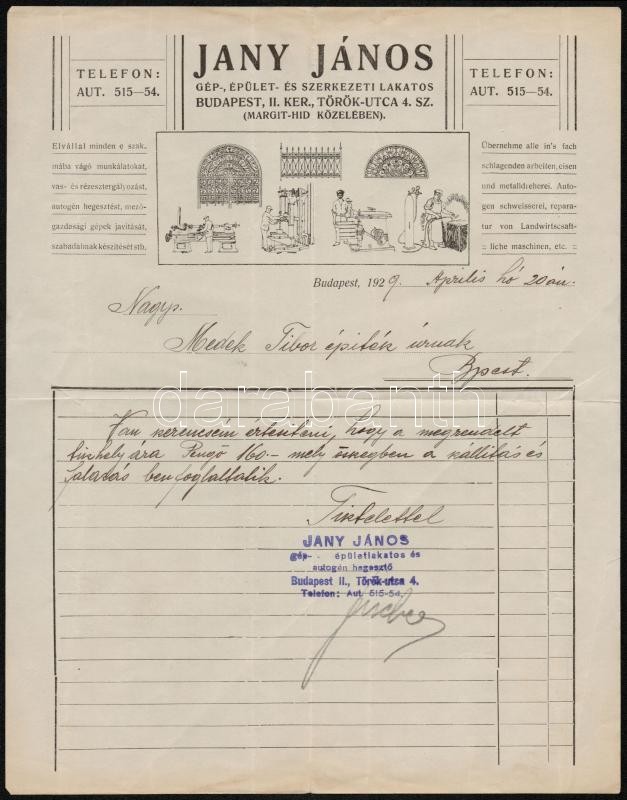 JANY JÁNOS
GÉP-, ÉPÜLET- ÉS SZERKEZETI LAKATOS
BUDAPEST, II. KER., TÖRÖK-UTCA 4. SZ.
(MARGIT-HID KÖZELÉBEN).
TELEFON:
AUT. 515—54.
TELEFON:
AUT. 515—54.
Elvállal minden e szak.
mába vágó munkálatokat,
vas- és rézesztergályozást,
autogén hegesztést, mező-
gazdasági gépek javitását,
szabadalmak készitését stb.
Übernehme alle in's fach
schlagenden arbeiten, eisen
und metalldreherei. Auto-
gen schweisserei, repara-
tur von Landwirtscsaft-
liche maschinen, etc.
Budapest, 1929. Április hó 20án.
Nagys.
Medek Tibor épiték úrnak
Bpest.
darabanth
Van szerencsém értesíteni, hogy a megrendelt
tűzhely ára Pengő 160.— mely összegben a szállítás és
falazás benfoglaltatik.
Tisztelettel
JANY JÁNOS
gép- épületlakatos és
autogén hegesztő
Budapest II., Török-utca 4.
Telefon: Aut. 515-54.